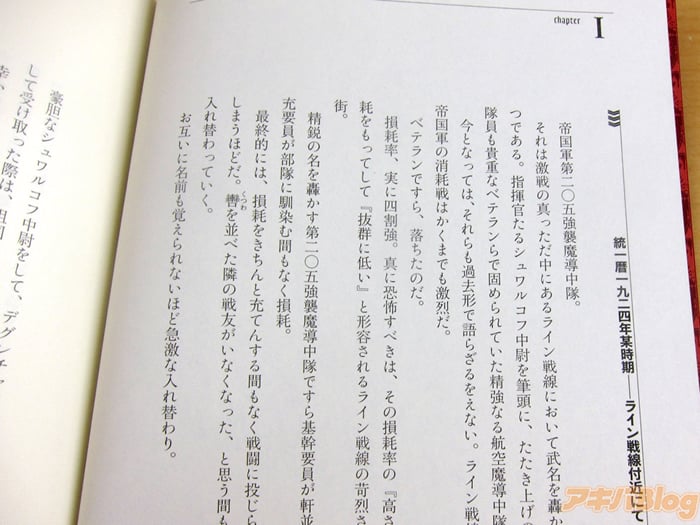 chapter I
統一暦一九二四年某時期――ライン戦線付近にて
帝国軍第二〇五強襲魔導中隊。
それは激戦の真っただ中にあるライン戦線において武名を轟か
つである。指揮官たるシュワルコフ中尉を筆頭に、たたき上げの
隊員も貴重なベテランらで固められていた精強なる航空魔導中隊
今となっては、それらも過去形で語らざるをえない。ライン戦
帝国軍の消耗戦はかくまでも激烈だ。
ベテランですら、落ちたのだ。
損耗率、実に四割強。真に恐怖すべきは、その損耗率の『高さ
耗をもってして『抜群に低い』と形容されるライン戦線の苛烈さ
街。
精鋭の名を轟かす第二〇五強襲魔導中隊ですら基幹要員が軒並
充要員が部隊に馴染む間もなく損耗。
最終的には、損耗をきちんと充てんする間もなく戦闘に投じら
しまうほどだ。轡を並べた隣の戦友がいなくなった、と思う間も
くつわ
入れ替わっていく。
お互いに名前も覚えられないほど急激な入れ替わり。
豪胆なシュワルコフ中尉をして、デグレチャ
して受け取った際は、祖国
アキバBlog